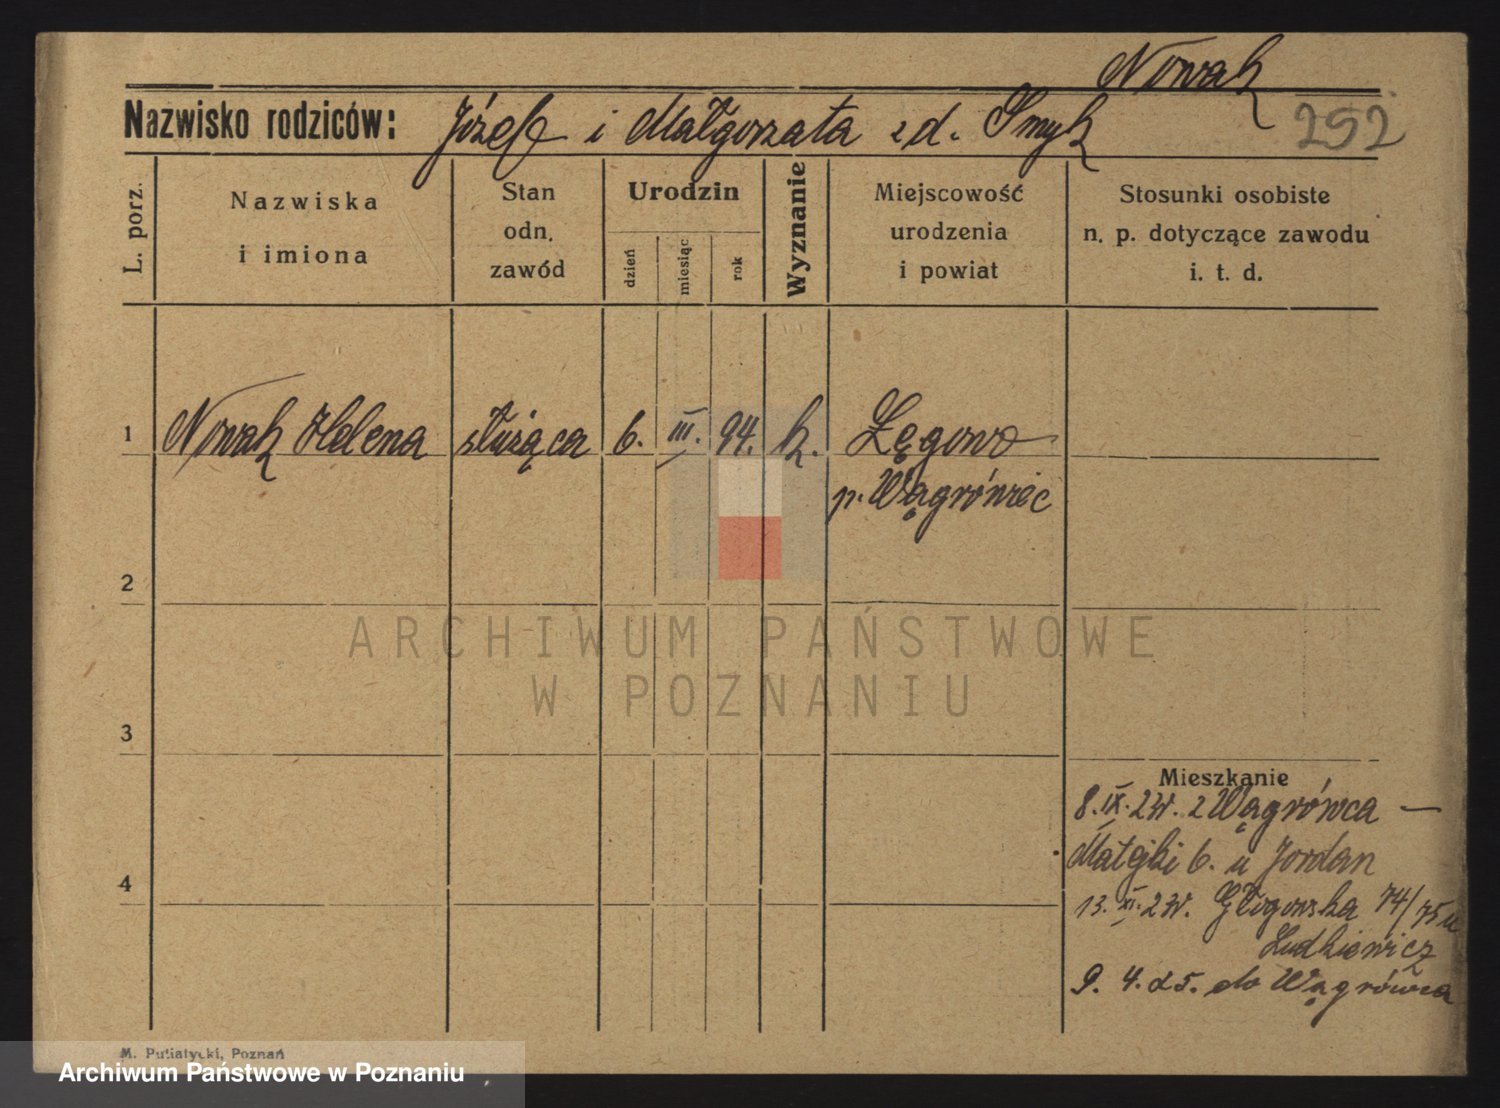 Nowak
Nazwisko rodziców: Józef i Małgorzata z d. Smyk
252
L. porz.
Nazwiska
i imiona
Stan
odn.
zawód
Urodzin
dzień
miesiąc
rok
Wyznanie
Miejscowość
urodzenia
i powiat
Stosunki osobiste
n. p. dotyczące zawodu
i. t. d.
1 Nowak Helena służąca 6. III. 94. k. Łęgowo
p. Wągrówiec
2
3
4
Mieszkanie
8. IX. 24. z Wągrówca —
Matejki 6. u Jordan
13. XI. 24. Głogowska 74/75 u
Ludkiewicz
9. 4. 25. do Wągrówca
M. Putiatycki, Poznań
ARCHIWUM PAŃSTWOWE
W POZNANIU
Archiwum Państwowe w Poznaniu